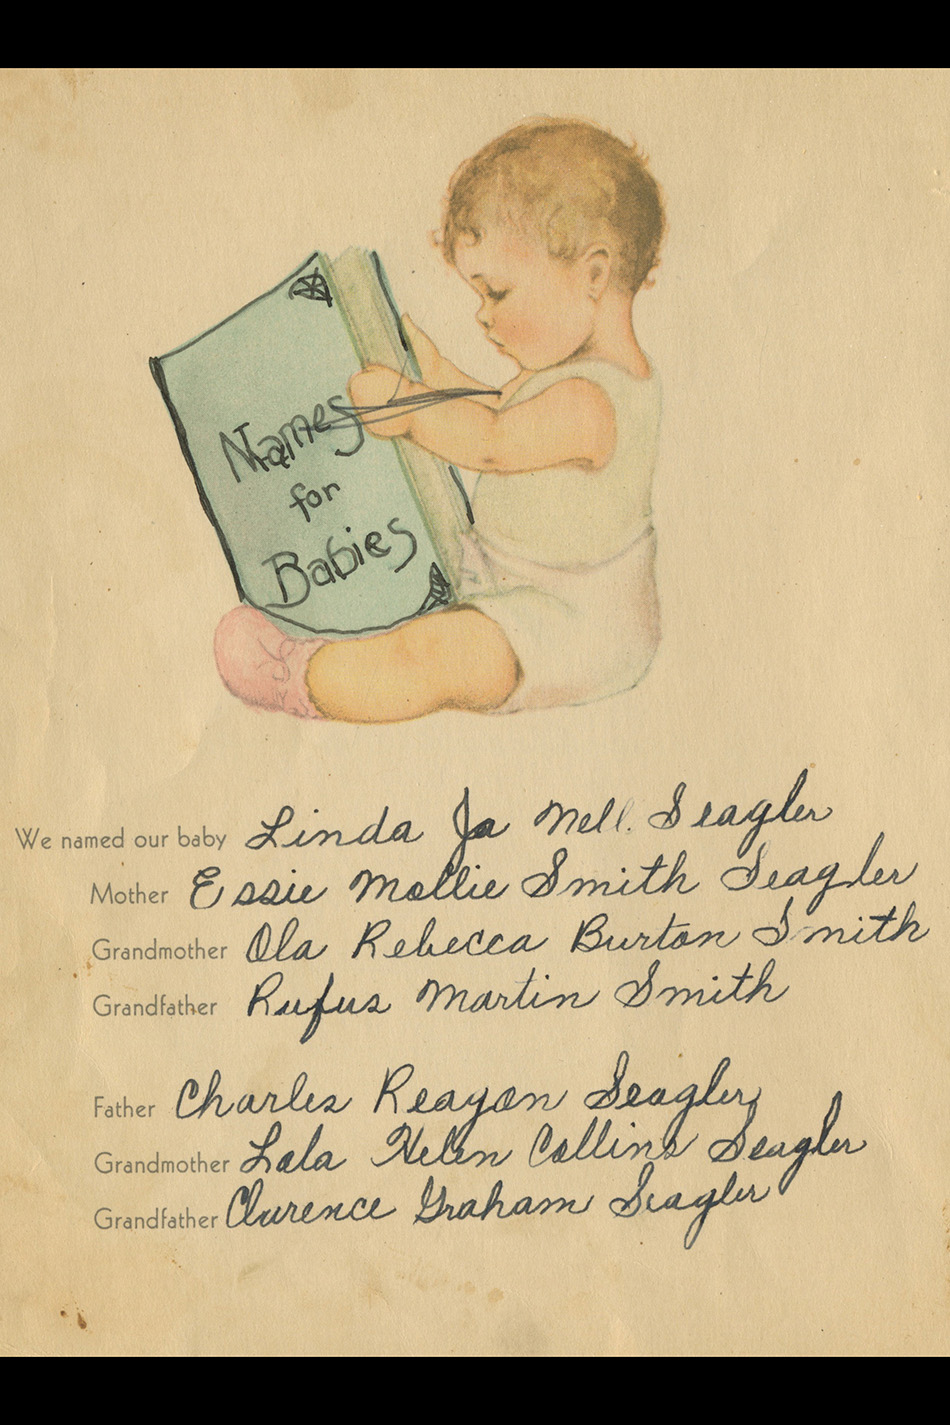 Names
for
Babies
We named our baby Linda Jo Nell Seagler
Mother Essie Mollie Smith Seagler
Grandmother Ola Rebecca Burton Smith
Grandfather Rufus Martin Smith
Father Charles Reagan Seagler
Grandmother Lola Helen Collins Seagler
Grandfather Clarence Graham Seagler